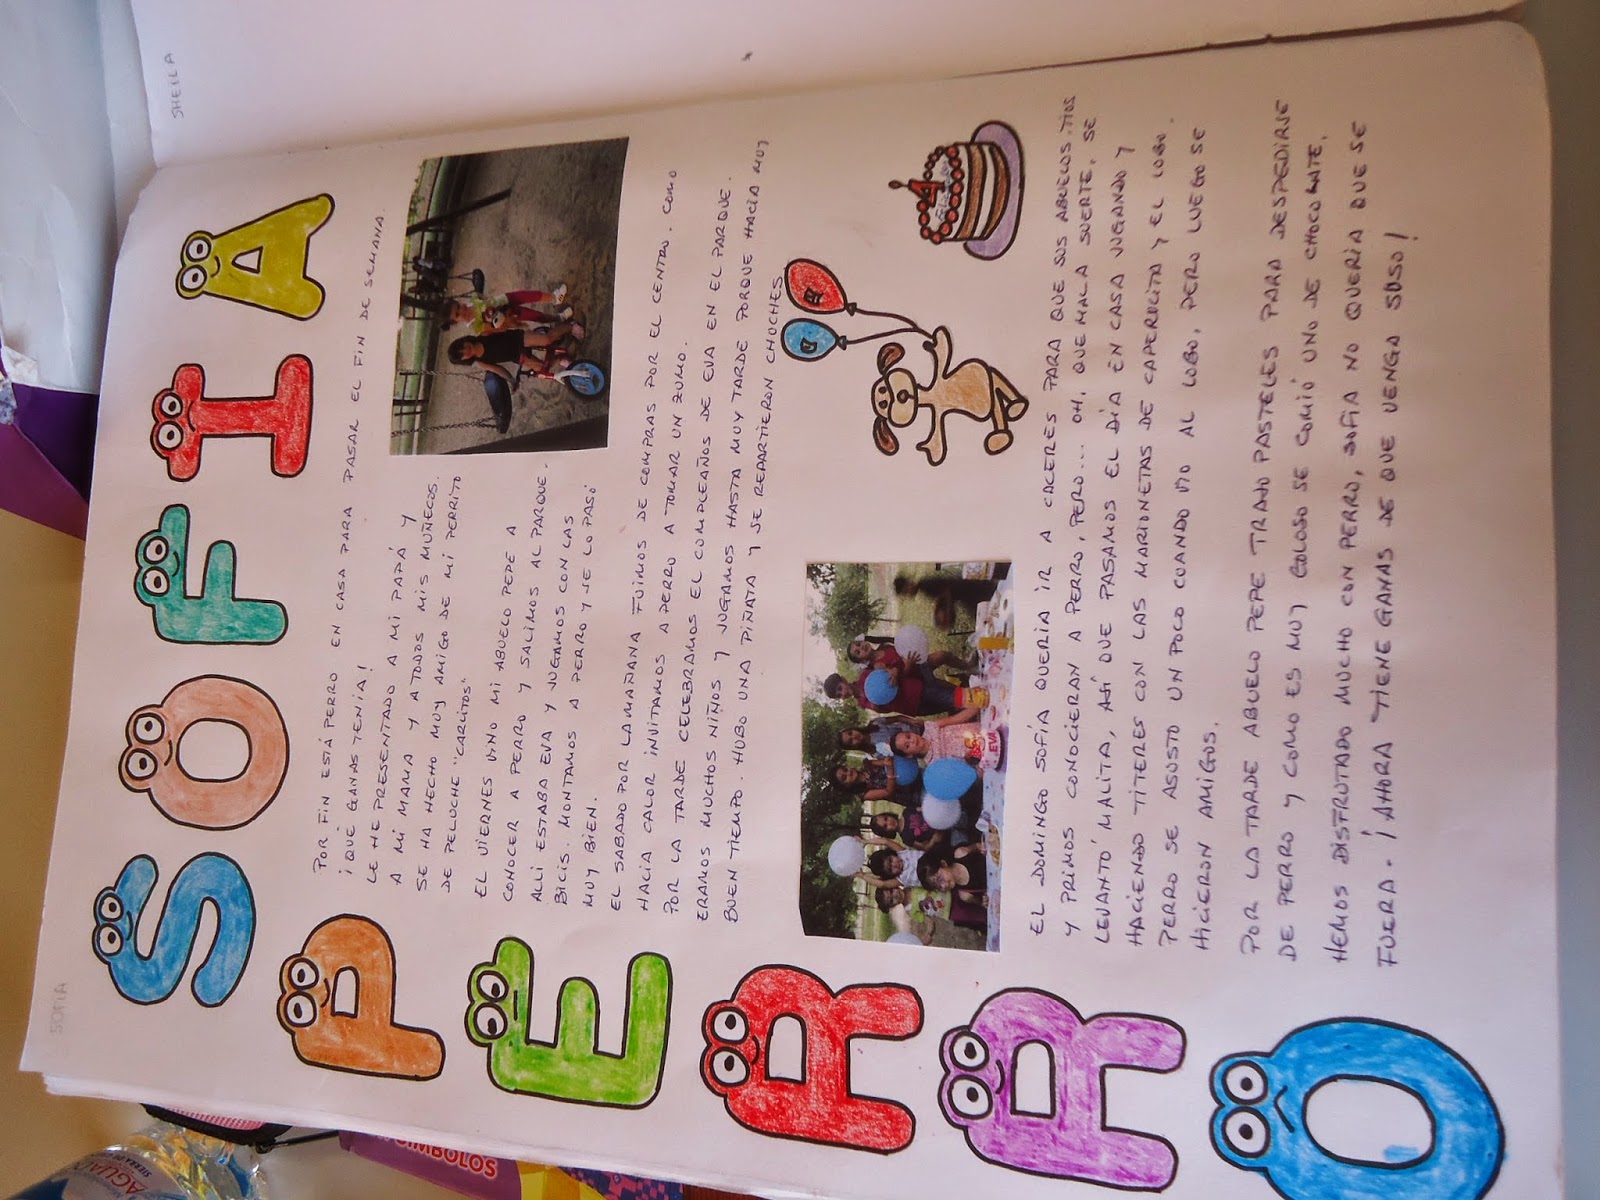 SOFIA
SHEILA
SOFIA
PERRO
POR FIN ESTÁ PERRO EN CASA PARA PASAR EL FIN DE SEMANA.
¡QUÉ GANAS TENIA!
LE HE PRESENTADO A MI PAPÁ Y
A MI MAMA Y A TODOS MIS MUÑECOS.
SE HA HECHO MUY AMIGO DE MI PERRITO
DE PELUCHE "CARLITOS"
EL VIERNES VINO MI ABUELO PEPE A
CONOCER A PERRO Y SALIMOS AL PARQUE.
ALLI ESTABA EVA Y JUGAMOS CON LAS
BICIS. MONTAMOS A PERRO Y SE LO PASÓ
MUY BIEN.
EL SABADO POR LA MAÑANA FUIMOS DE COMPRAS POR EL CENTRO. COMO
HACIA CALOR INVITAMOS A PERRO A TOMAR UN ZUMO.
POR LA TARDE CELEBRAMOS EL CUMPLEAÑOS DE EVA EN EL PARQUE.
ERAMOS MUCHOS NIÑOS Y JUGAMOS HASTA MUY TARDE PORQUE HACIA MUY
BUEN TIEMPO. HUBO UNA PIÑATA Y SE REPARTIERON CHUCHES
4
EVA
EL DOMINGO SOFÍA QUERIA IR A CÁCERES PARA QUE SUS ABUELOS, TIOS
Y PRIMOS CONOCIERAN A PERRO, PERO... OH, QUE MALA SUERTE, SE
LEVANTÓ MALITA, ASÍ QUE PASAMOS EL DÍA EN CASA JUGANDO Y
HACIENDO TITERES CON LAS MARIONETAS DE CAPERUCITA Y EL LOBO.
PERRO SE ASUSTO UN POCO CUANDO VIO AL LOBO, PERO LUEGO SE
HICIERON AMIGOS.
POR LA TARDE ABUELO PEPE TRAJO PASTELES PARA DESPEDIRSE
DE PERRO Y COMO ES MUY GOLOSO SE COMIÓ UNO DE CHOCOLATE.
HEMOS DISFRUTADO MUCHO CON PERRO, SOFIA NO QUERIA QUE SE
FUERA. ¡AHORA TIENE GANAS DE QUE VENGA SUSO!